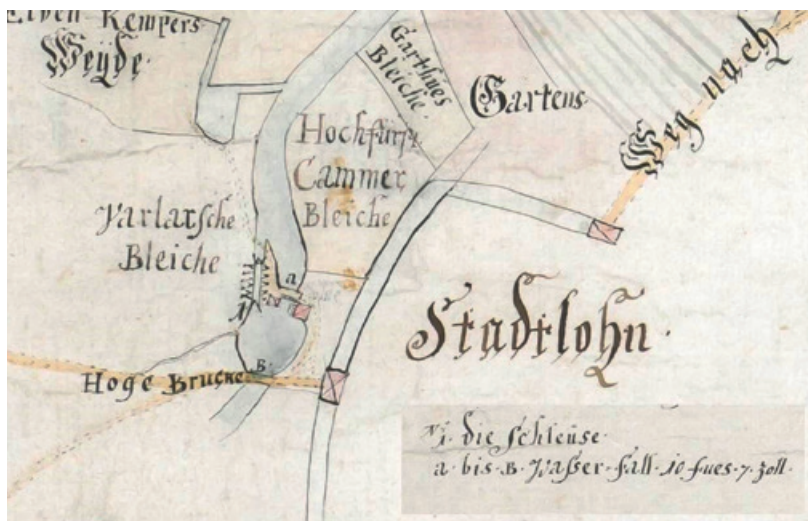 Even Kempers
Weÿde.
Garthues
Bleiche.
Gartens.
Weg nach
Hochfürstl
Cammer
Bleiche
Varlarsche
Bleiche
a
B
Hoge Brucke
Stadtlohn.
N 1. die Schleuse.
a bis B Wasser-fall 10 fues 7 zoll.